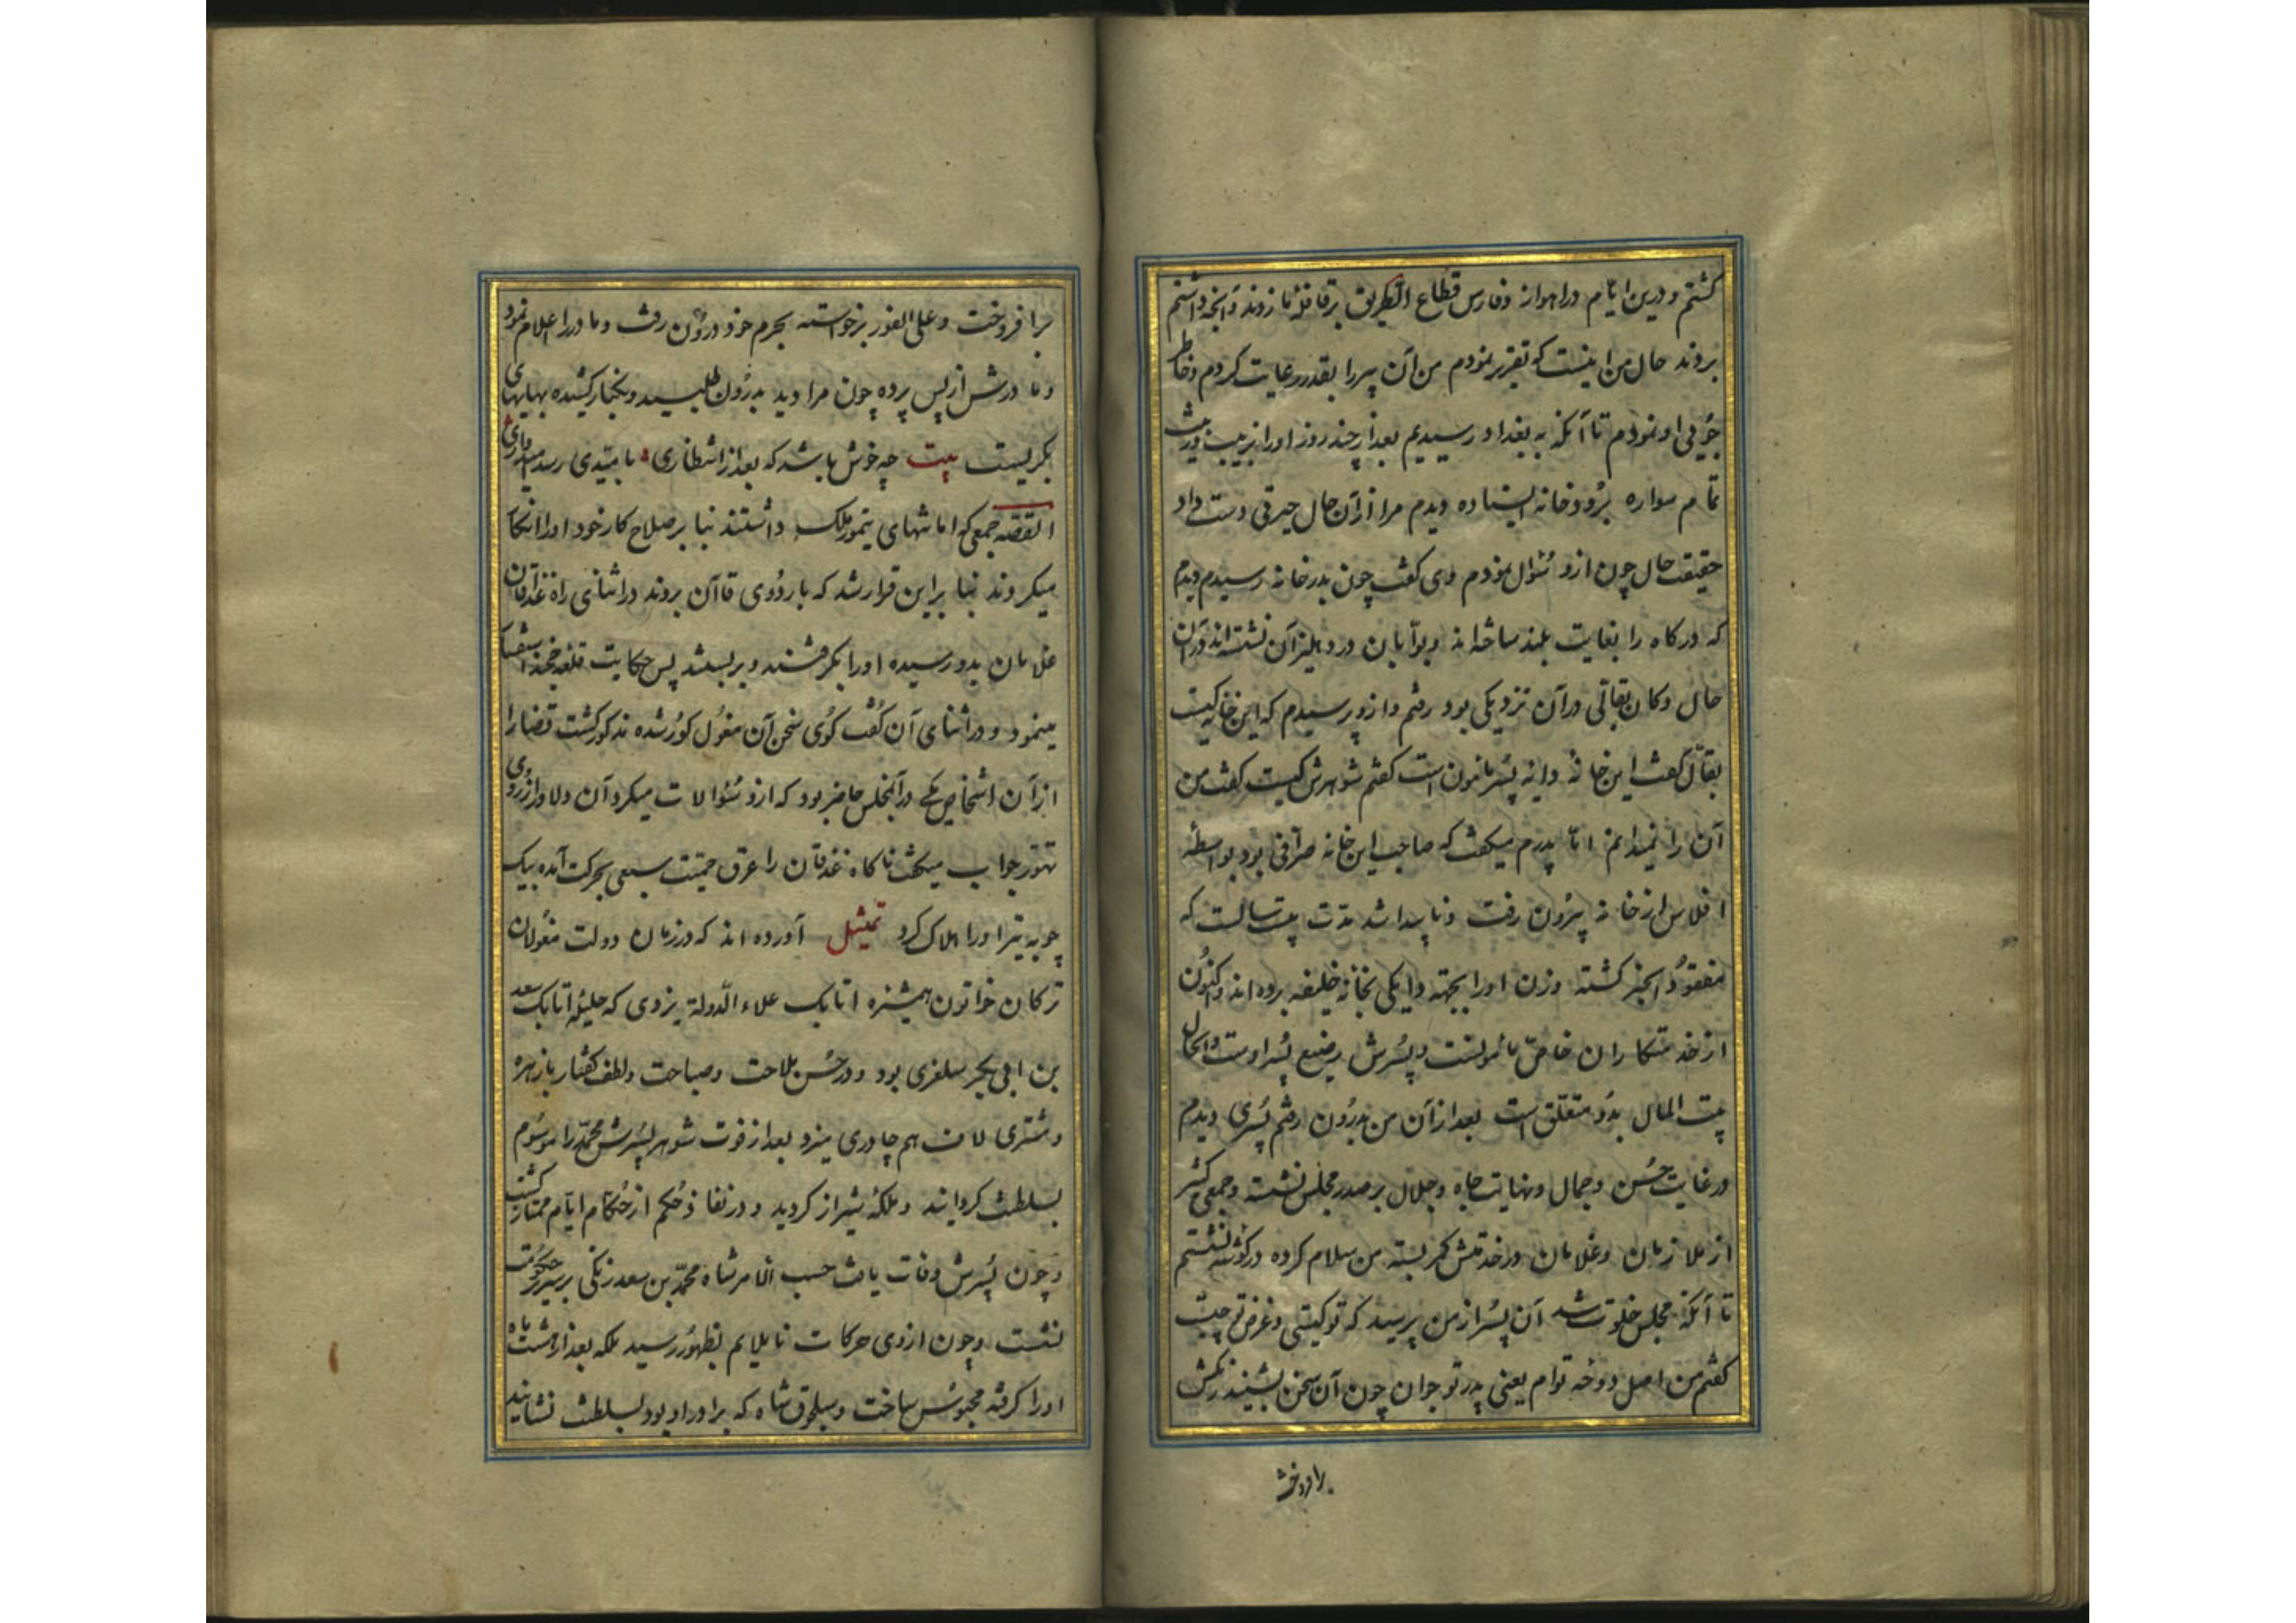 کشتم و درین ایام در اهواز و فارس قطاع الطریق بر قافلهٔ ما زدند و آنچه داشتم
بردند حال من اینست که تقریر نمودم من آن پیر را بقدر رعایت کردم و خاطر
جوئی او نمودم تا آنکه به بغداد رسیدیم بعد از چند روز او را بزیب و زینت
تمام سواره بر در خانه ایستاده دیدم مرا از آن حال حیرتی دست داد
حقیقت حال چون ازو سئوال نمودم وی کفت چون بدر خانه رسیدم دیدم
که درکاه را بغایت بلند ساخته اند و بوابان در دهلیز آن نشسته اند در آن
حال دکان بقالی در آن نزدیکی بود رفتم و ازو پرسیدم که این خانه کیست
بقال کفت این خانه دایه پسر مامون است کفتم شوهرش کیست کفت من
آن را نمیدانم اما پدرم میکفت که صاحب این خانه صرافی بود بواسطهٔ
افلاس از خانه بیرون رفت و ناپیدا شد مدت بیست سالست که
مفقود الخبر کشته و زن او را بجهته دایکی بخانه خلیفه برده اند و اکنون
از خدمتکاران خاص مامونست و پسرش رضیع پسر اوست و الحال
بیت المال بدو متعلق است بعد از آن من بدرون رفتم پسری دیدم
در غایت حسن و جمال و نهایت جاه و جلال بر صدر مجلس نشسته و جمعی کثیر
از ملازمان و غلامان در خدمتش کمر بسته من سلام کرده در کوشه نشستم
تا آنکه مجلس خلوت شد آن پسر از من پرسید که تو کیستی و غرض تو چیست
کفتم من اصل دوحه توام یعنی پدر تو جوان چون آن سخن بشنید رنکش
برافروخت
برافروخت و علی الفور برخواسته بحرم خود درون رفت و مادر را اعلام نمود
و مادرش از پس پرده چون مرا دید بدرون طلبید و بکنار کشیده بهایهای
بکریست بیت چه خوش باشد که بعد از انتظاری بامیدی رسد امیدواری
القصه جمعی که امانتهای تیمور ملک داشتند بنا بر صلاح کار خود او را انکار
میکردند بنا براین قرار شد که باردوی قاآن بروند در اثنای راه غدقان
غلامان بدو رسیده او را بکرفتند و بر بستند پس حکایت قلعه خجند استفسار
مینمود و در اثنای آن کفت کوی سخن آن مغول کور شده مذکور کشت قضا را
از آن اشخاص یکی در آن مجلس حاضر بود که ازو سئوالات میکرد آن دلاور از روی
تهور جواب میکفت ناکاه غدقان را عرق حمیت سبعی بحرکت آمده بیک
چوبه تیر او را هلاک کرد تمثیل آورده اند که در زمان دولت مغولان
ترکان خواتون همشیره اتابک علاء الدولة یزدی که حلیلهٔ اتابک سعد
بن ابی بکر سلغری بود و در حسن ملاحت و صباحت و لطف کفتار با زهره
و مشتری لاف هم چادری میزد بعد از فوت شوهر پسرش محمد را موسوم
بسلطنت کردانید و ملکهٔ شیراز کردید و در نفاذ حکم از حکام ایام ممتاز کشت
و چون پسرش وفات یافت حسب الامر شاه محمد بن سعد زنکی بر سریر حکومت
نشست و چون ازوی حرکات ناملایم بظهور رسید ملکه بعد از هشت ماه
او را کرفته محبوس ساخت و سلجوق شاه که برادر او بود بسلطنت نشانید